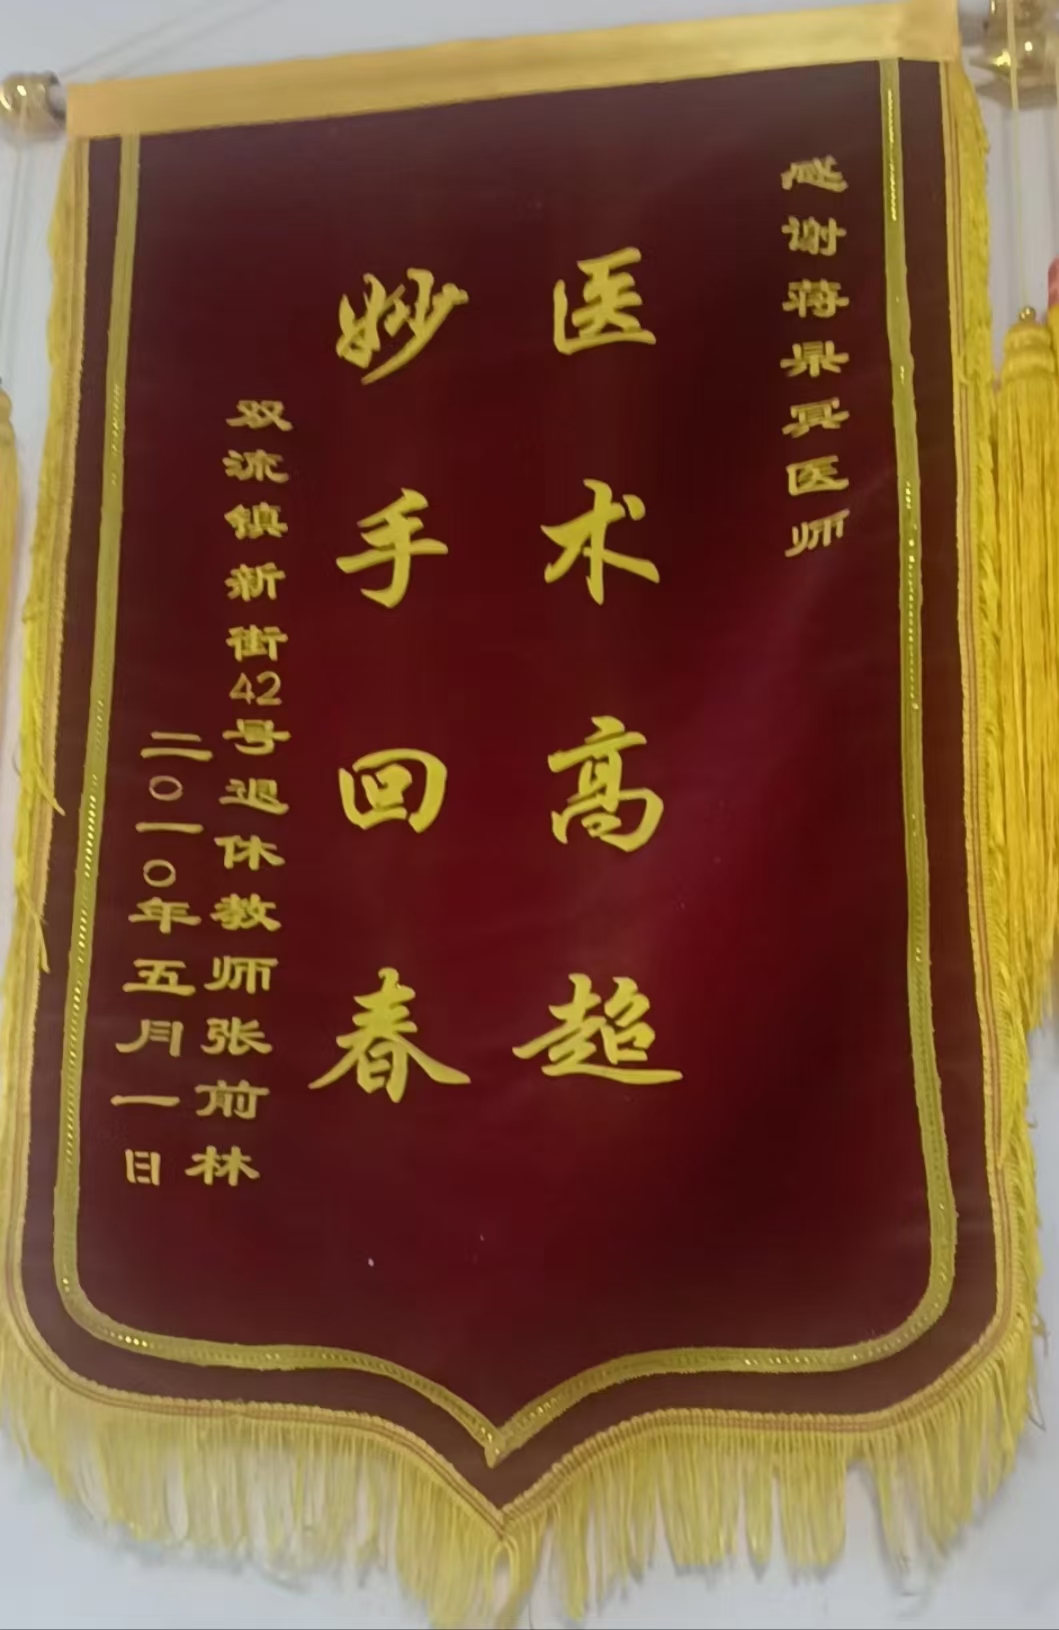 感谢蒋杲冥医师
医术高超
妙手回春
双流镇新街42号退休教师张前林
二〇一〇年五月一日